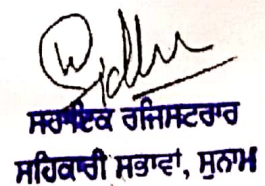 ਸਹਾਇਕ ਰਜਿਸਟਰਾਰ
ਸਹਿਕਾਰੀ ਸਭਾਵਾਂ, ਸੁਨਾਮ